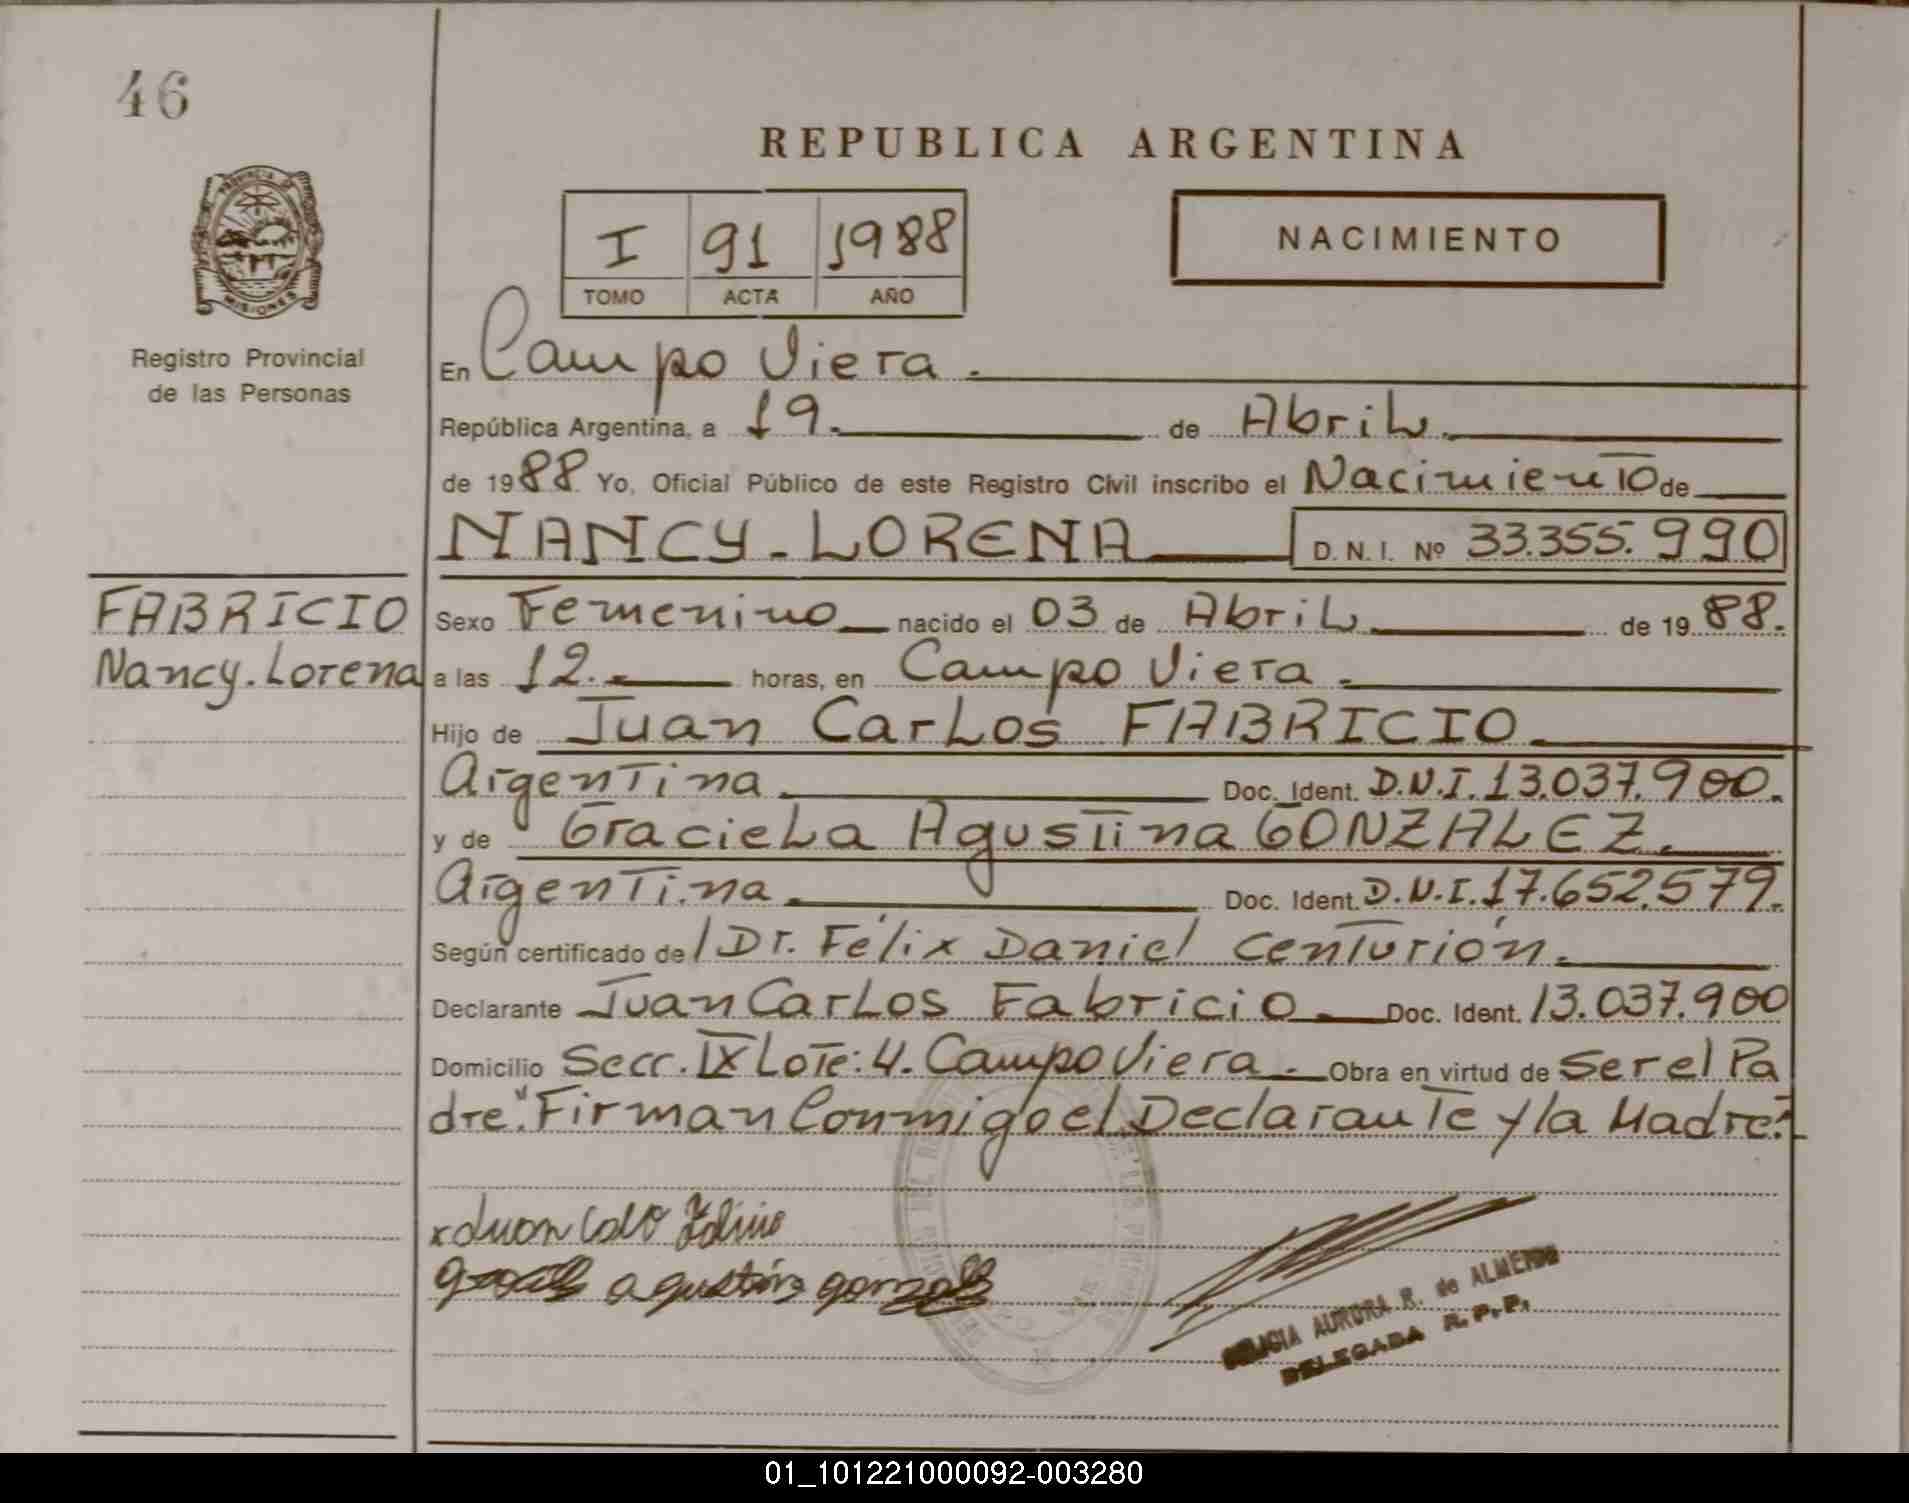 46
REPUBLICA ARGENTINA
PROVINCIA DE
MISIONES
Registro Provincial
de las Personas
I 91 1988
TOMO ACTA AÑO
NACIMIENTO
En Campo Viera.
República Argentina, a 19. de Abril.
de 1988 Yo, Oficial Público de este Registro Civil inscribo el Nacimiento de
NANCY-LORENA D. N. I. Nº 33.355.990
FABRICIO
Nancy-Lorena
Sexo Femenino nacido el 03 de Abril de 1988.
a las 12. horas, en Campo Viera.
Hijo de Juan Carlos FABRICIO.
Argentina. Doc. Ident. D.N.I. 13.037.900.
y de Graciela Agustina GONZALEZ.
Argentina. Doc. Ident. D.N.I. 17.652.579.
Según certificado de l Dr. Félix Daniel Centurión.
Declarante Juan Carlos Fabricio. Doc. Ident. 13.037.900
Domicilio Secc. IX Lote: 4. Campo Viera. Obra en virtud de ser el Pa
dre". Firman Conmigo el Declarante y la Madre".
agustina gonzalez
AURORA R. de ALMEIDA
DELEGADA R. P. P.
01_101221000092-003280